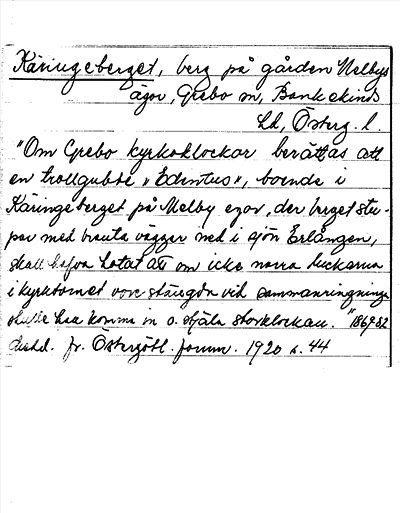 Käringeberget, berg på gården Melbys
ägor, Grebo sn, Bankekinds
hd, Österg. l.
"Om Grebo kyrkoklockor berättas att
en trollgubbe "Edintus", boende i
Käringeberget på Melby egor, der berget stu-
par med branta väggar ned i sjön Erlången,
skall hafva hotat att om icke norra luckorna
i kyrktornet vore stängda vid sammanringningen
skulle han komma in o. stjäla storklockan." 1869-82
Östergötl. fornm. 1920 s. 44